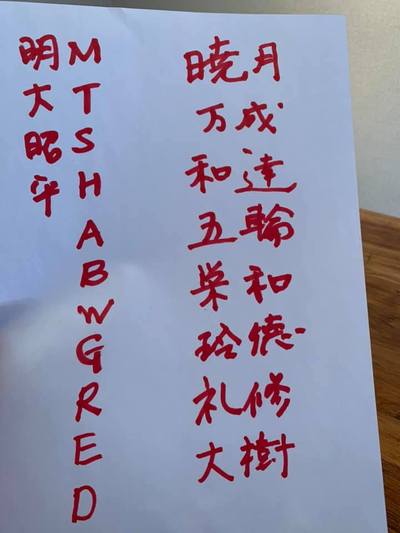 明M
大T
昭S
平H
A
B
W
G
R
E
D
暁月
万成
和達
五輪
栄和
玲徳
礼修
大樹